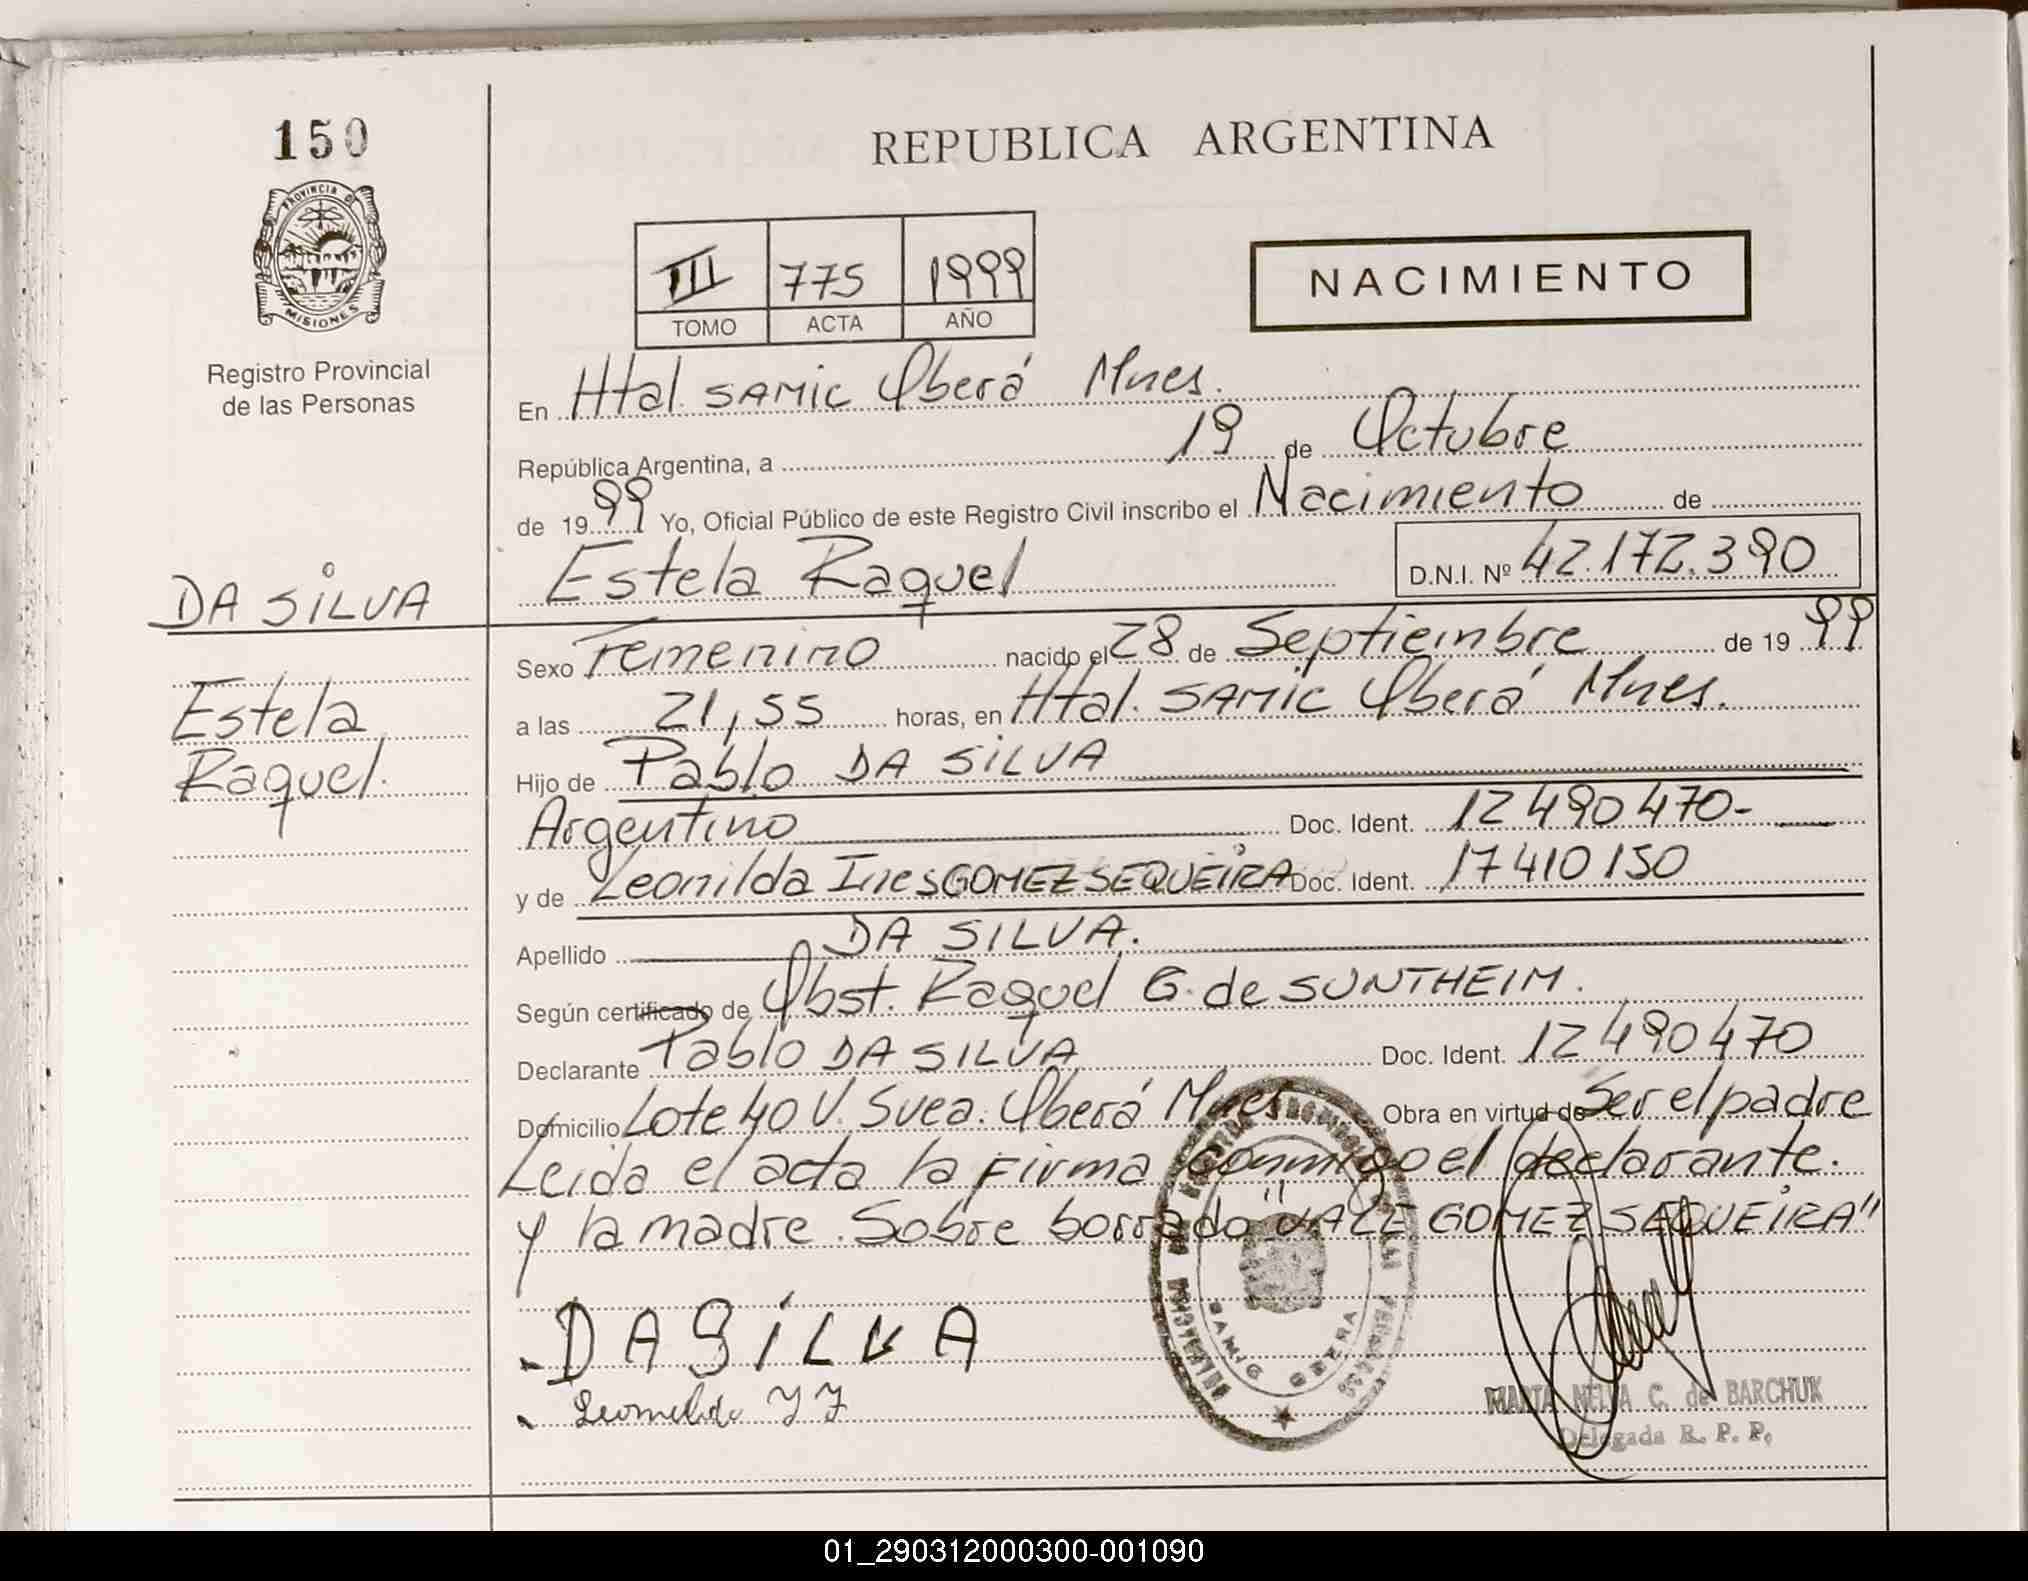 150
PROVINCIA DE
MISIONES
Registro Provincial
de las Personas
DA SILVA
Estela
Raquel.
REPUBLICA ARGENTINA
III 775 1999
TOMO ACTA AÑO
NACIMIENTO
En Htal. SAMIC Oberá Mnes.
República Argentina, a 19 de Octubre
de 1999 Yo, Oficial Público de este Registro Civil inscribo el Nacimiento de
Estela Raquel D.N.I. Nº 42.172.390
Sexo Femenino nacido el 28 de Septiembre de 1999
a las 21,55 horas, en Htal. SAMIC Oberá Mnes.
Hijo de Pablo DA SILVA
Argentino Doc. Ident. 12490470-
y de Leonilda Ines GOMEZ SEQUEIRA Doc. Ident. 17410150
Apellido DA SILVA.
Según certificado de Obst. Raquel G. de SUNTHEIM.
Declarante Pablo DA SILVA Doc. Ident. 12490470
Domicilio Lote 40 V. Svea. Oberá Mnes Obra en virtud de Ser el padre
Leida el acta la firma conmigo el declarante.
y la madre. Sobre borrado "VALE GOMEZ SEQUEIRA"
DA SILVA
SAMIC OBERA
MARTA NELVA C. de BARCHUK
Delegada R. P. P.
01_290312000300-001090